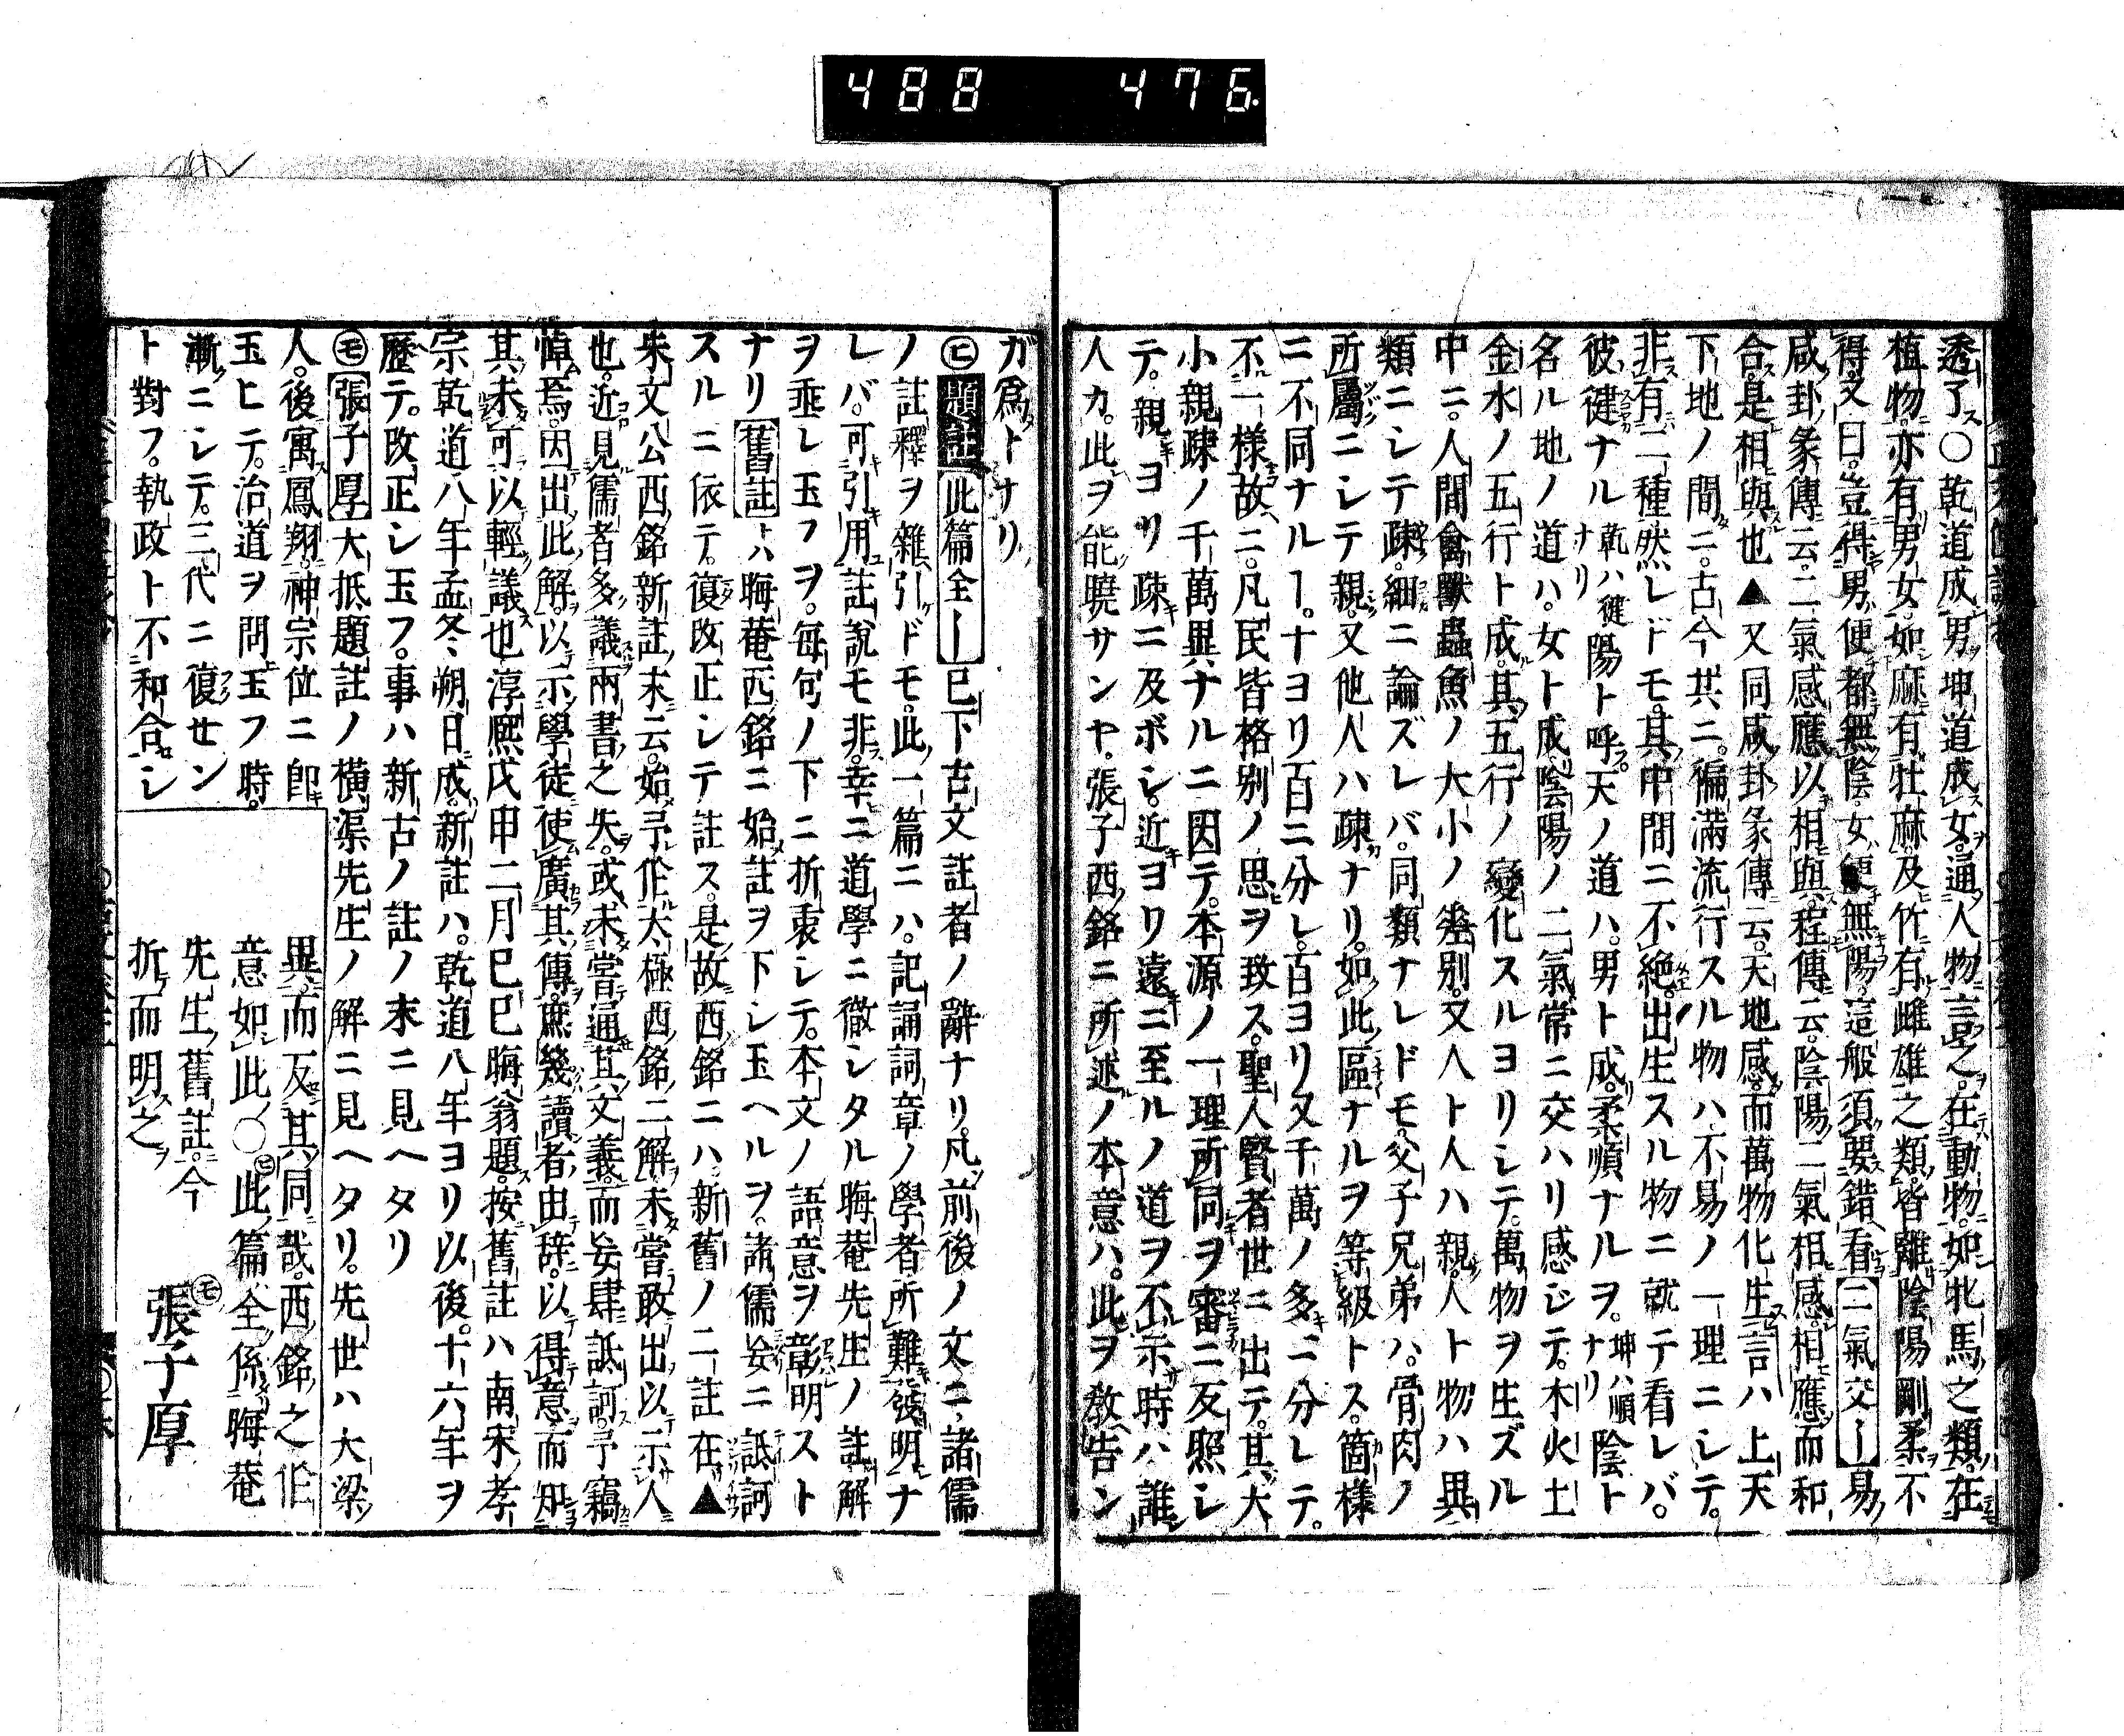 488 476
透了○乾道成男坤道成女通人物言之在動物如牝馬之類在
植物亦有男女如麻有牡麻及竹有雌雄之類皆離陰陽剛柔不
得又曰豈得男便都無陰女便無陽這般須要錯看二氣交｜易
咸卦彖傳云二氣感應以相與程傳云陰陽二氣相感相應而和
合是相與也▲又同咸卦彖傳云天地感而萬物化生言ハ上天
下地ノ間ニ古今其ニ徧滿流行スル物ハ不易ノ一理ニシテ
非有二種然レドモ其中間ニ不絶出生スル物ニ就テ看レバ
彼健ナル乾ハ健ナリ陽ト呼天ノ道ハ男ト成柔順ナルヲ坤ハ順ナリ陰ト
名ル地ノ道ハ女ト成陰陽ノ二氣常ニ交ハリ感ジテ木火土
金水ノ五行ト成其五行ノ變化スルヨリシテ萬物ヲ生ズル
中ニ人間禽獸蟲魚ノ大小ノ差別又人ト人ハ親人ト物ハ異
類ニシテ疎細ニ論ズレバ同類ナレドモ父子兄弟ハ骨肉ノ
所屬ニシテ親又他人ハ疎ナリ如此區ナルヲ等級トス箇樣
ニ不同ナルヿ十ヨリ百ニ分レ百ヨリ又千萬ノ多ニ分レテ
不一樣故ニ凡民皆格別ノ思ヲ致ス聖人賢者世ニ出テ其大
小親疎ノ千萬異ナルニ因テ本源ノ一理所同ヲ審ニ反照シ
テ親ヨリ疎ニ及ボシ近ヨリ遠ニ至ルノ道ヲ不示時ハ誰
人カ此ヲ能曉サンヤ張子西銘ニ所述ノ本意ハ此ヲ敎告ン
ガ爲トナリ
㋪題註此篇全｜已下古文註者ノ辭ナリ凡前後ノ文ニ諸儒
ノ註釋ヲ雜引ドモ此一篇ニハ記誦詞章ノ學者所難發明ナ
レバ可引用註說モ非幸ニ道學ニ徹シタル晦菴先生ノ註解
ヲ垂レ玉フヲ每句ノ下ニ折衷シテ本文ノ語意ヲ彰明スト
ナリ舊註トハ晦菴西銘ニ始註ヲ下シ玉ヘルヲ諸儒妄ニ詆訶
スルニ依テ復改正シテ註ス是故西銘ニハ新舊ノ二註在▲
朱文公西銘新註末云始予作大極西銘二解未嘗敢出以示人
也近見儒者多議兩書之失或未嘗通其文義而妄肆詆訶予竊
悼焉因出此解以示學徒使廣其傳庶幾讀者由辞以得意而知
其未可以輕議也淳熙戊申二月己巳晦翁題按舊註ハ南宋孝
宗乾道八年孟冬朔日成新註ハ乾道八年ヨリ以後十六年ヲ
歷テ改正シ玉フ事ハ新古ノ註ノ末ニ見ヘタリ
㋲張子厚大抵題註ノ橫渠先生ノ解ニ見ヘタリ先世ハ大梁
人後寓鳳翔神宗位ニ卽
玉ヒテ治道ヲ問玉フ時
漸ニシテ三代ニ復セン
ト對フ執政ト不和合シ
異而反其同哉西銘之作
意如此○㋪此篇全係晦菴
先生舊註今
折而明之
㋲張子厚